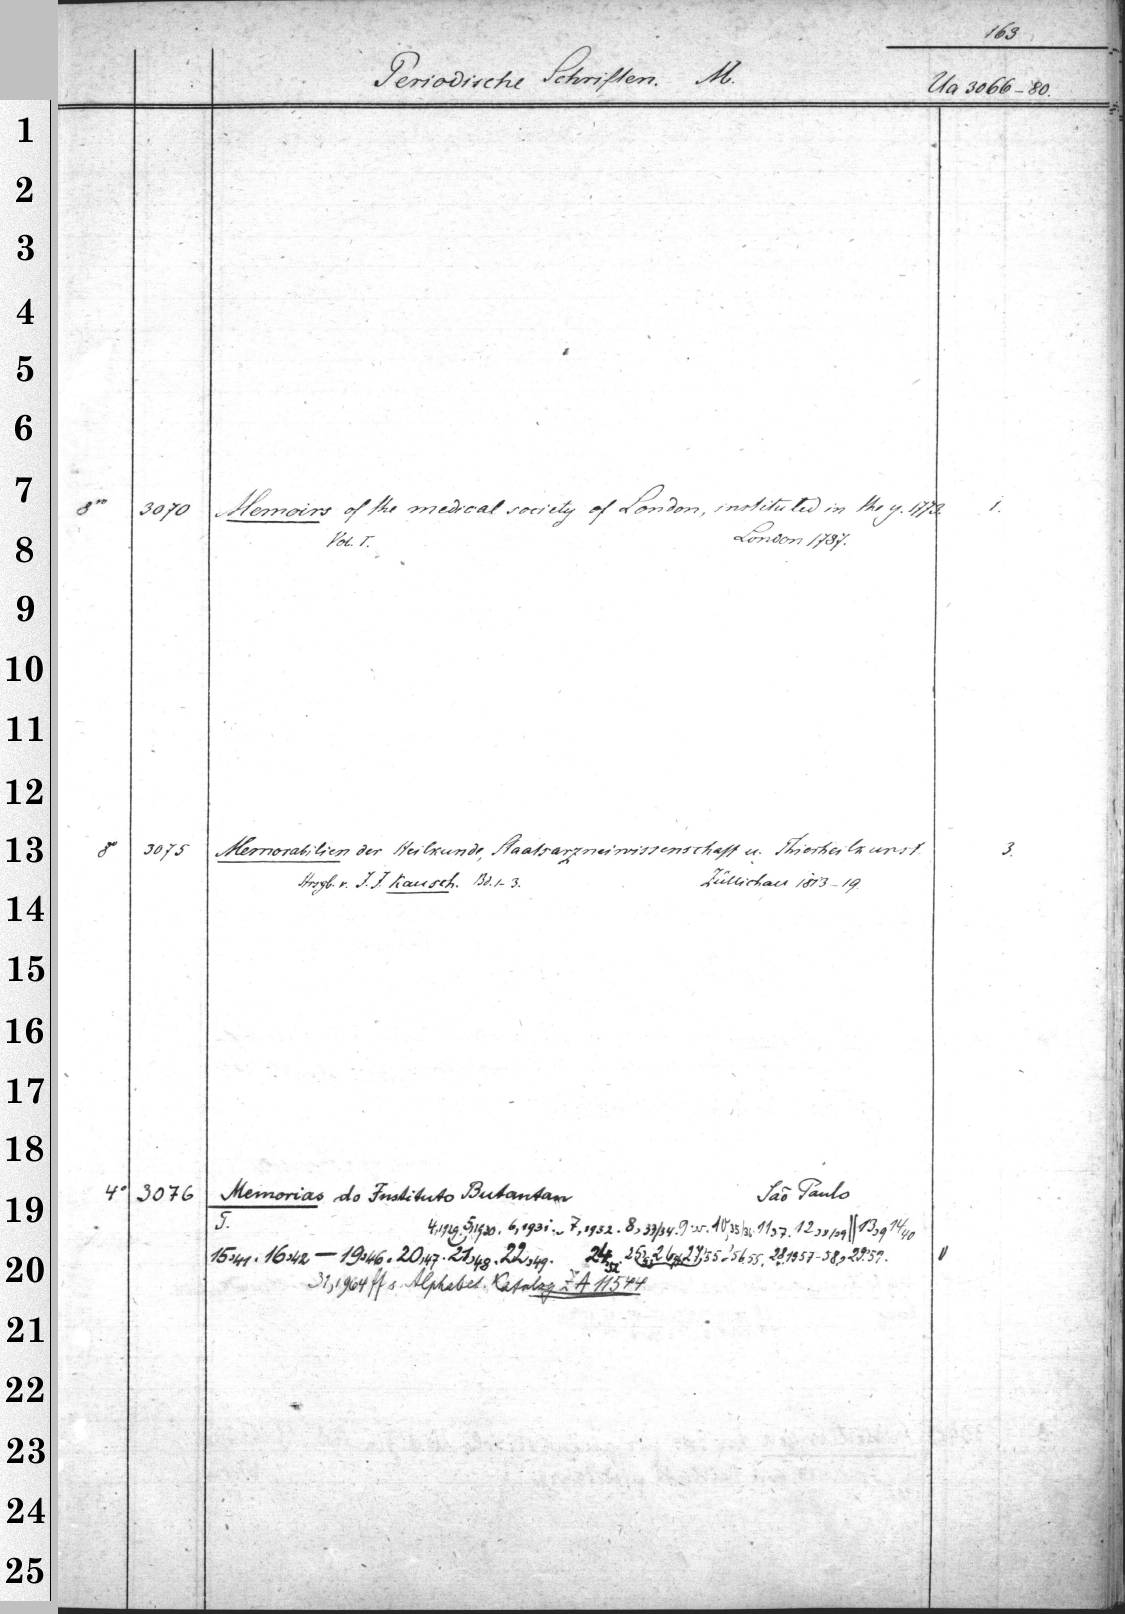 163
Periodische Schriften. M.
Ua 3066-80.
1
2
3
4
5
6
7
8vo 3070 Memoirs of the medical society of London, instituted in the y. 1773. 1.
8 Vol. I. London 1787.
9
10
11
12
13
8vo 3075 Memorabilien der Heilkunde, Staatsarzneiwissenschaft u. Thierheilkunst. 3.
Hrsgb. v. J. J. Kausch. Bd. 1-3. Züllichau 1813-19.
14
15
16
17
18
4° 3076 Memorias do Instituto Butantan São Paulo
19 T. 4,1929. 5,1930. 6,1931. 7,1932. 8,33/34. 9,35. 10,35/36. 11,37. 12,38/39 13,39 14,40
20 15,41. 16,42 — 19,46. 20,47. 21,48. 22,49. 24,52 28,1957-58, 29,59.
31,1964 ff s. Alphabet. Katalog ZA 11544
21
22
23
24
25